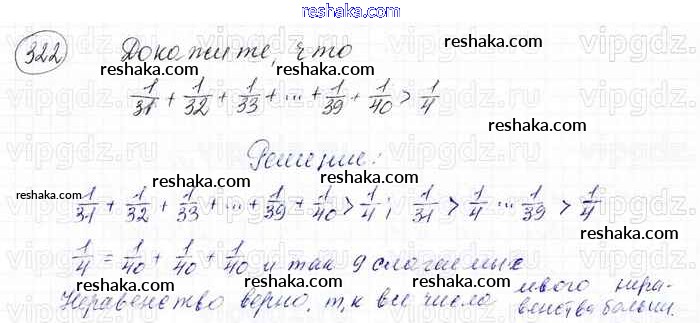 reshaka.com
322 Докажите, что
reshaka.com reshaka.com
1/31 + 1/32 + 1/33 + ... + 1/39 + 1/40 > 1/4
reshaka.com
Решение:
reshaka.com reshaka.com reshaka.com
1/31 + 1/32 + 1/33 + ... + 1/39 + 1/40 > 1/4; 1/31 > 1/4 ... 1/39 > 1/4
1/4 = 1/40 + 1/40 + 1/40 и так 9 слагаемых
reshaka.com reshaka.com reshaka.com
Неравенство верно, т,к все числа левого нера-
венства больше.